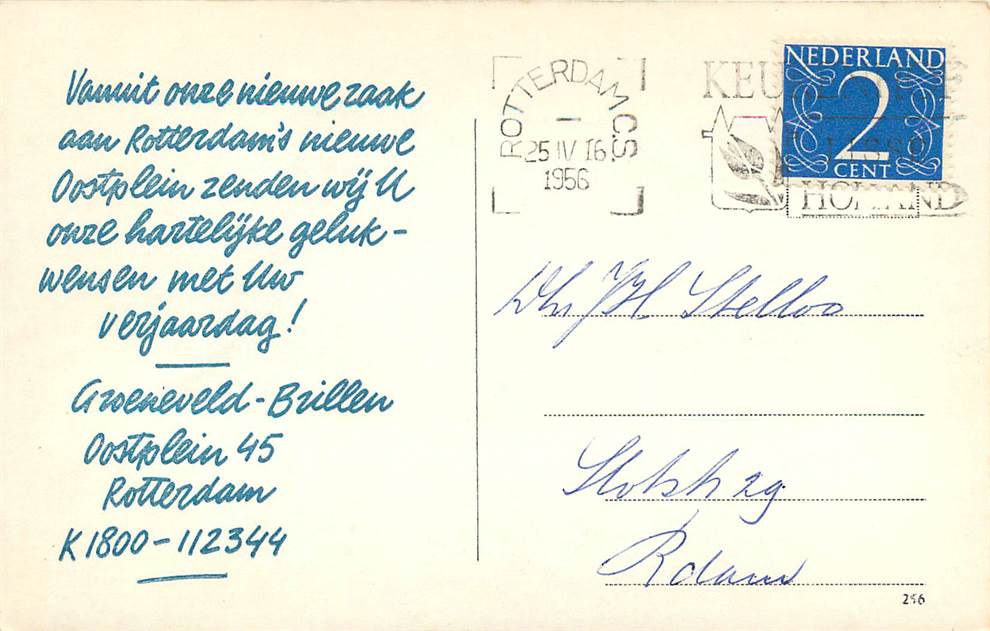 Vanuit onze nieuwe zaak
aan Rotterdam's nieuwe
Oostplein zenden wij U
onze hartelijke geluk-
wensen met Uw
verjaardag!
Groeneveld-Brillen
Oostplein 45
Rotterdam
K1800-112344
ROTTERDAM C.S
25 IV 16
1956
KEU
LISSE
HOLLAND
NEDERLAND
2
CENT
Dhr JH Stelloo
29
Rdam
296